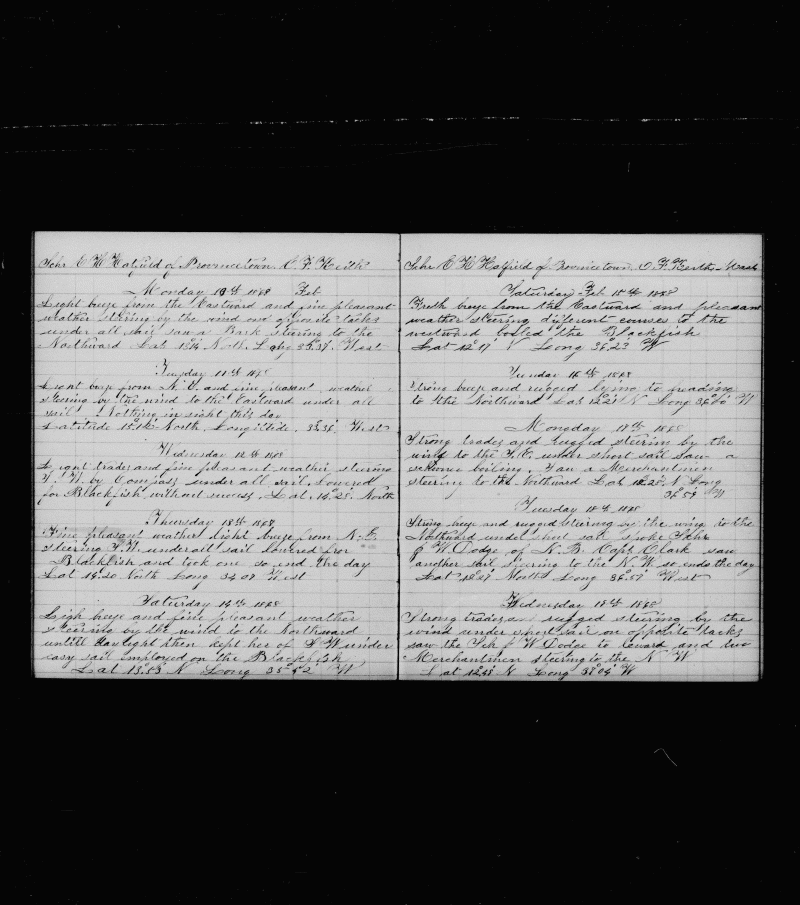 Schr E H Hatfield of Provincetown. O. F. Keith
Monday 10th 1868 Feb
Light breeze from the Eastward and fine pleasant
weather steering by the wind on opposite tacks
under all sail saw a Bark steering to the
Northward Lat 13 North. Long 35.37. West
Tuesday 11th 1868
Light breeze from N. E. and fine pleasant weather
steering by the wind to the Eastward under all
sail. Nothing in sight this day
Latitude North. Longitude. West
Wednesday 12th 1868
Light trades and fine pleasant weather steering
W by Compass under all sail. Lowered
for Blackfish without success. Lat. 14.28. North
Thursday 13th 1868
Fine pleasant weather light breeze from N. E.
steering S. W. under all sail lowered for
Blackfish and took one so end the day
Lat 14.20 North Long 34 07 West
Saturday 14th 1868
Ligh breeze and fine pleasant weather
steering by the wind to the Northward
untill daylight then kept her of S W under
easy sail employed on the Blackfish
Lat 13.53 N Long 35 52 W
Schr E H Hatfield of Provincetown. O. F. Keith Mast
Saturday Feb 15th 1868
Fresh breeze from the Eastward and pleasant
weather steering different courses to the
westward boiled the Blackfish
Lat 12°17' N Long 36°23' W
Sunday 16th 1868
Strong breeze and rugged lying to heading
to the Northward Lat 12°21' N Long 36°00' W
Mongday 17th 1868
Strong trades and rugged steering by the
wind to the under short sail saw a
schooner boiling. Saw a Merchantmen
steering to the Nothward Lat 12.28. N Long
36.59 W
Tuesday 18th 1868
Strong breeze and rugged steering by the wing to the
Northward under short sail spoke Schr
J W. Dodge of N. B. Capt Clark saw
another sail steering to the N. W. so ends the day
Lat 12°37 North Long 36°57' West
Wednesday 18th 1868
Strong trades and rugged steering by the
wind under short sail on opposite tacks
saw the Sch J W Dodge to leward and two
Merchantmen steering to the N W
Lat 12.48 N Long 38°04' W